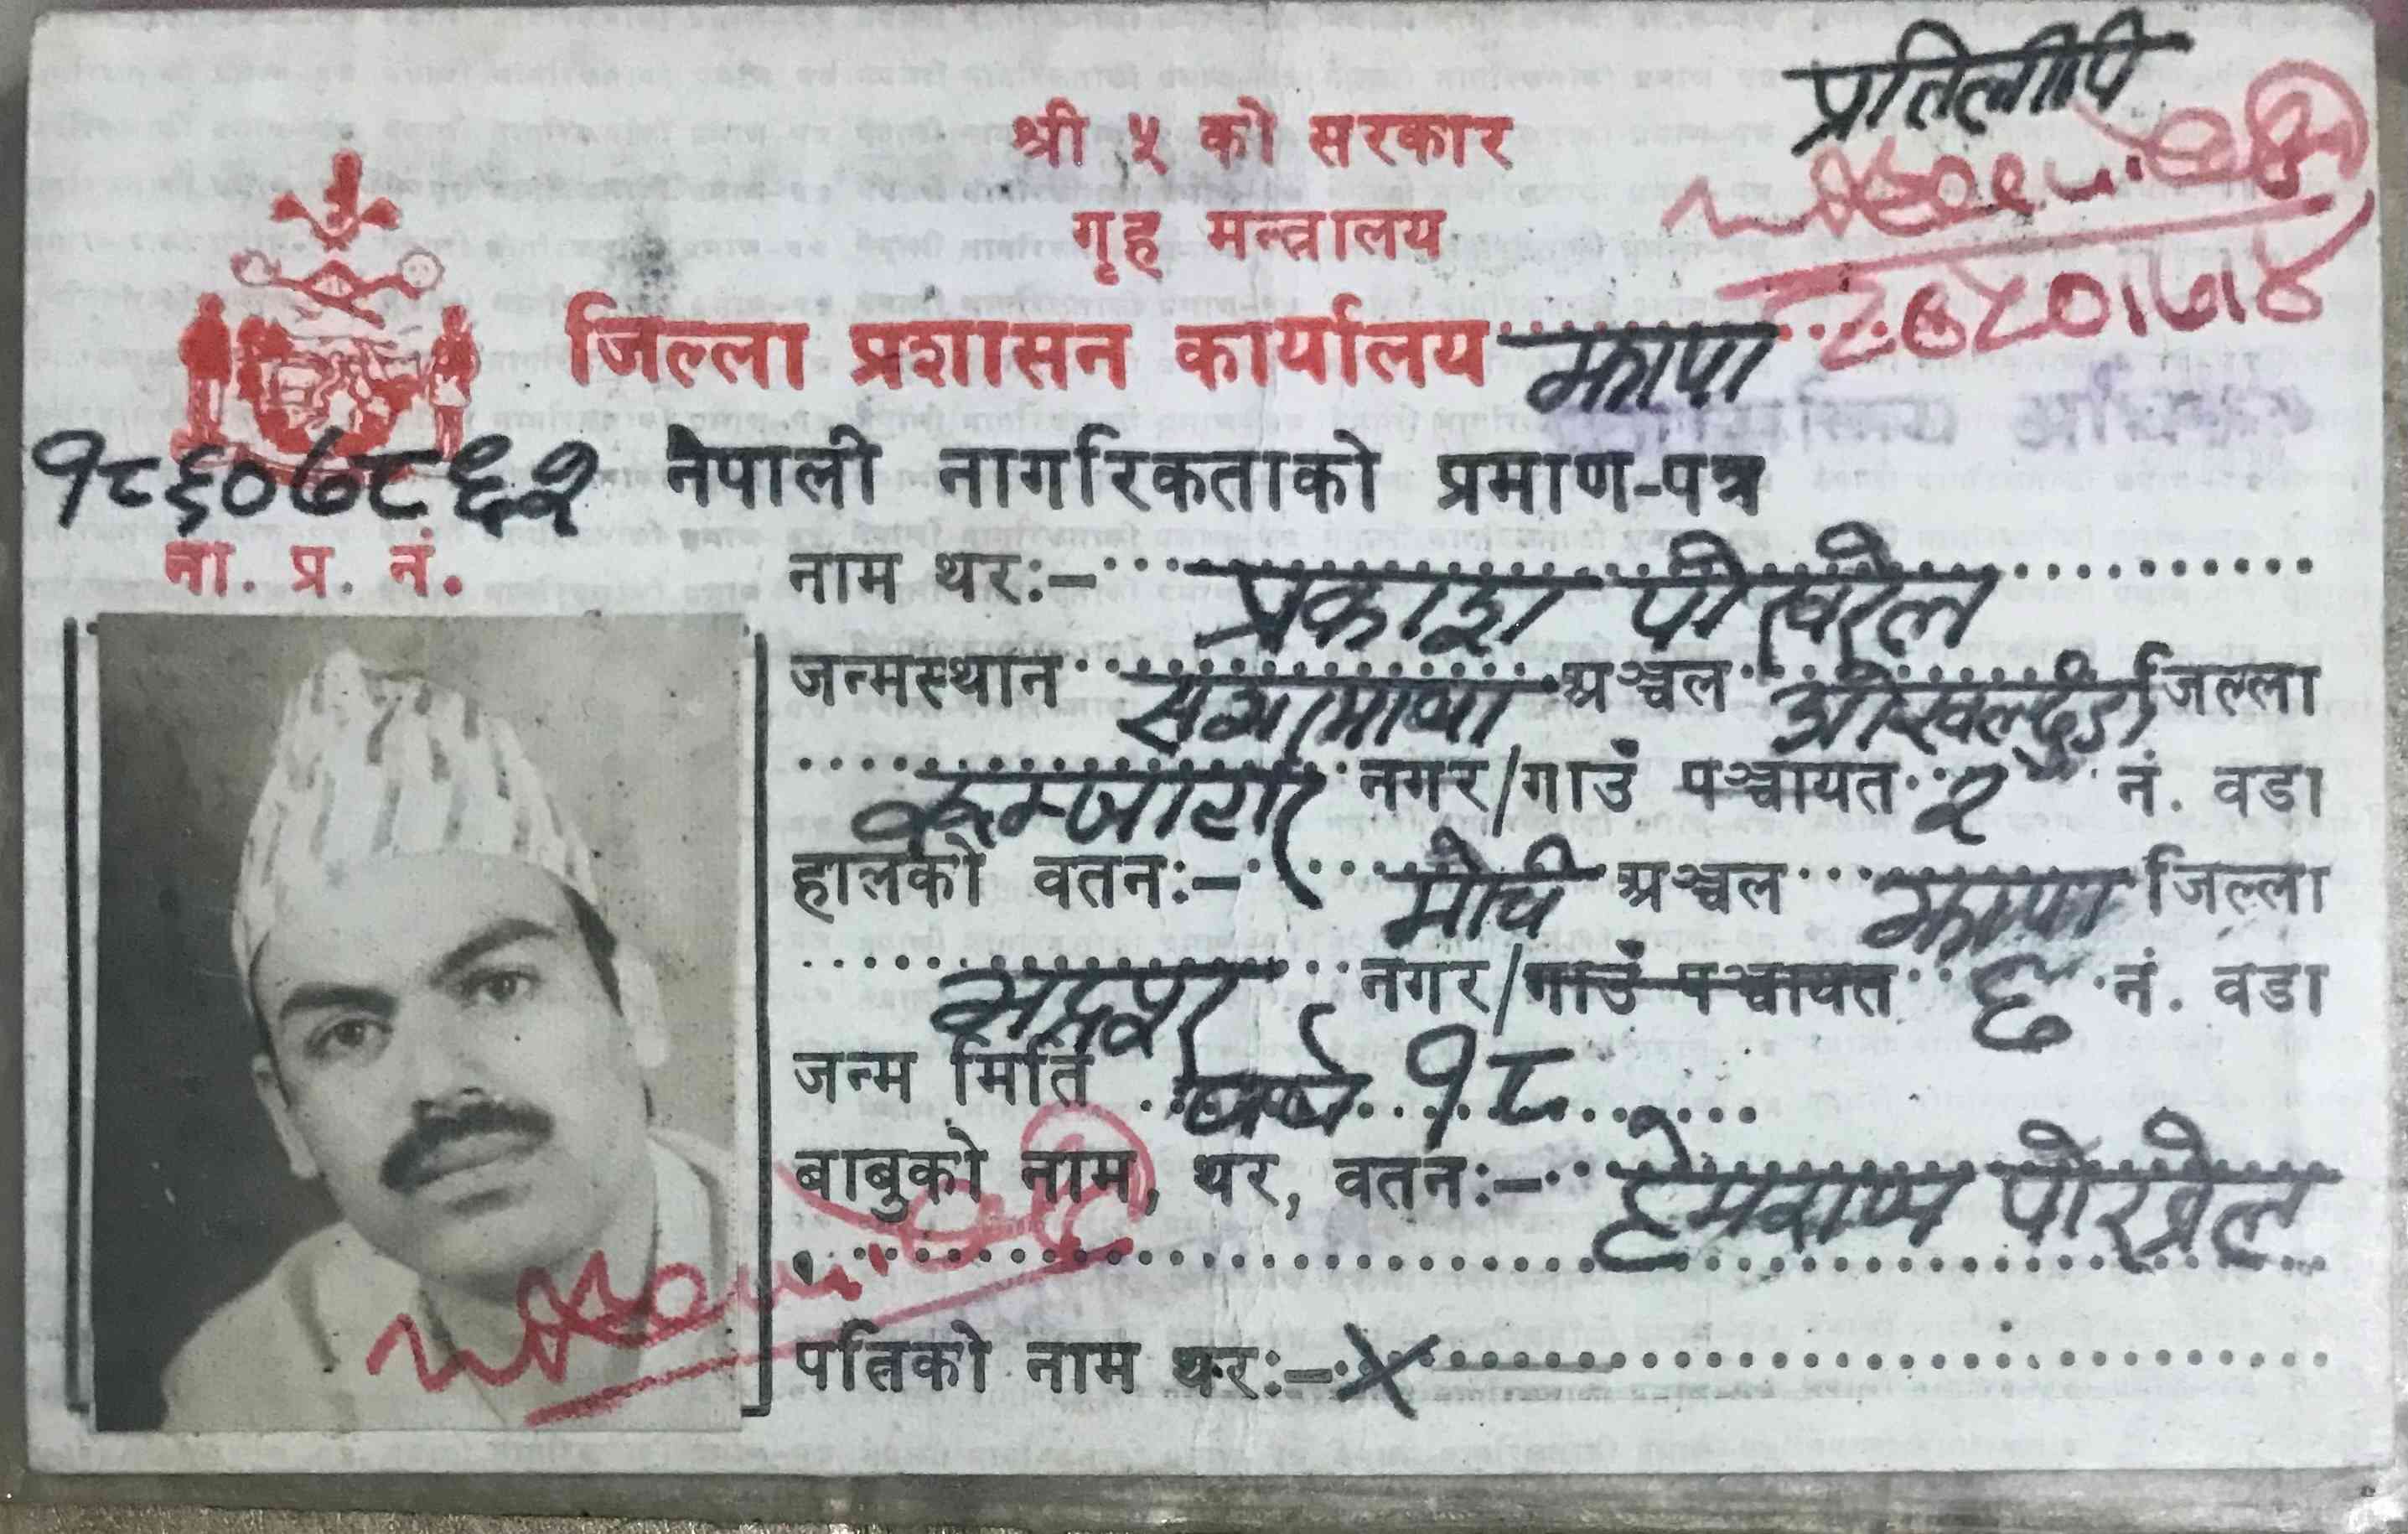 प्रतिलीपि
श्री ५ को सरकार
गृह मन्त्रालय
जिल्ला प्रशासन कार्यालय झापा
१८६०७८६२ नेपाली नागरिकताको प्रमाण-पत्र
ना. प्र. नं.
नाम थर:- प्रकाश पोखरेल
जन्मस्थान सगरमाथा अञ्चल ओखलढुंगा जिल्ला
नगर/गाउं पञ्चायत २ नं. वडा
हालको वतन:- मेची अञ्चल झापा जिल्ला
भद्रपुर नगर/गाउं पञ्चायत ६ नं. वडा
जन्म मिति वर्ष १८
बाबुको नाम, थर, वतन:- पोखरेल
पतिको नाम थर:- X